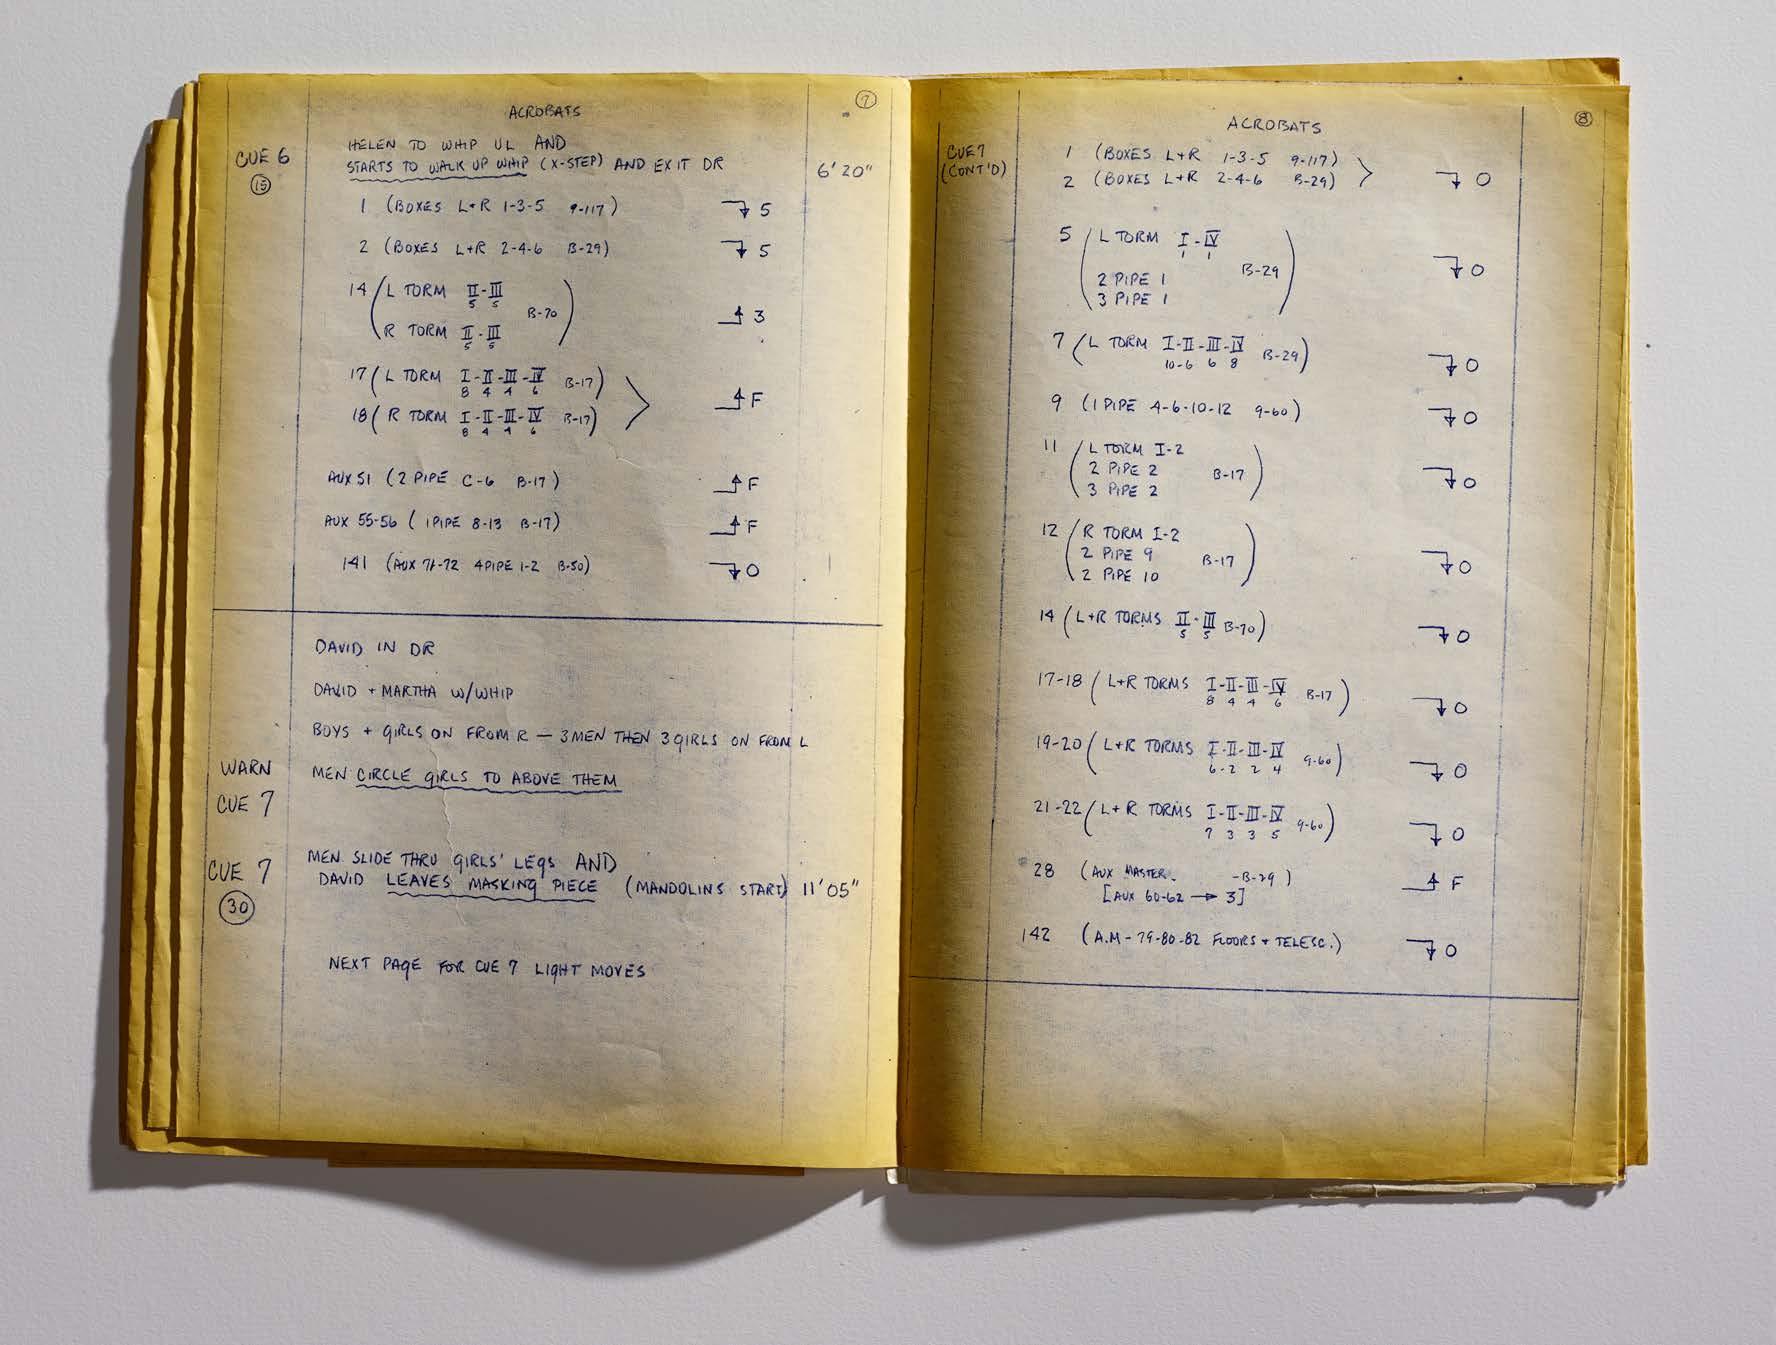 ACROBATS
7
CUE 6
15
HELEN TO WHIP UL AND
STARTS TO WALK UP WHIP (X-STEP) AND EXIT DR 6'20"
1 (BOXES L+R 1-3-5 9-117) ↓ 5
2 (BOXES L+R 2-4-6 B-29) ↓ 5
14 (L TORM II-III
5 5
B-70 ↑ 3
R TORM II-III)
5 5
17 (L TORM I-II-III-IV B-17)
8 4 4 6
> ↑ F
18 (R TORM I-II-III-IV B-17)
8 4 4 6
AUX 51 (2 PIPE C-6 B-17) ↑ F
AUX 55-56 (1 PIPE 8-13 B-17) ↑ F
141 (AUX 71-72 4 PIPE 1-2 B-50) ↓ 0
DAVID IN DR
DAVID + MARTHA W/WHIP
BOYS + GIRLS ON FROM R — 3 MEN THEN 3 GIRLS ON FROM L
WARN
CUE 7
MEN CIRCLE GIRLS TO ABOVE THEM
CUE 7
30
MEN SLIDE THRU GIRLS' LEGS AND
DAVID LEAVES MASKING PIECE (MANDOLINS START) 11'05"
NEXT PAGE FOR CUE 7 LIGHT MOVES
ACROBATS
8
CUE 7
(CONT'D)
1 (BOXES L+R 1-3-5 9-117)
2 (BOXES L+R 2-4-6 B-29) > ↓ 0
5 (L TORM I-IV
1 1
B-29 ↓ 0
2 PIPE 1
3 PIPE 1)
7 (L TORM I-II-III-IV B-29) ↓ 0
10-6 6 8
9 (1 PIPE 4-6-10-12 9-60) ↓ 0
11 (L TORM I-2
2 PIPE 2 B-17 ↓ 0
3 PIPE 2)
12 (R TORM I-2
2 PIPE 9 B-17 ↓ 0
2 PIPE 10)
14 (L+R TORMS II-III B-70) ↓ 0
5 5
17-18 (L+R TORMS I-II-III-IV B-17) ↓ 0
8 4 4 6
19-20 (L+R TORMS I-II-III-IV 9-60) ↓ 0
6-2 2 4
21-22 (L+R TORMS I-II-III-IV 9-60) ↓ 0
7 3 3 5
28 (AUX MASTER -B-29) ↑ F
[AUX 60-62 → 3]
142 (A.M-79-80-82 FLOORS + TELESC.) ↓ 0